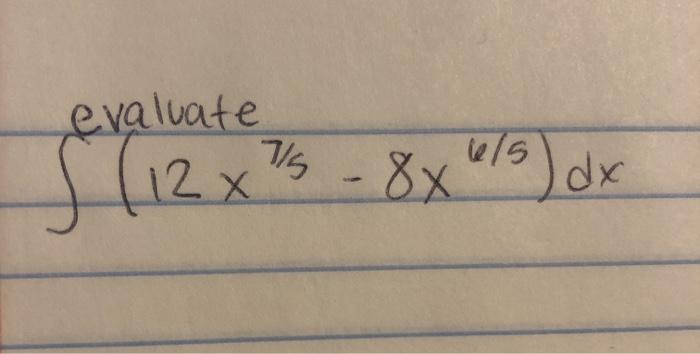 evaluate
∫ (12x^{7/5} - 8x^{6/5}) dx